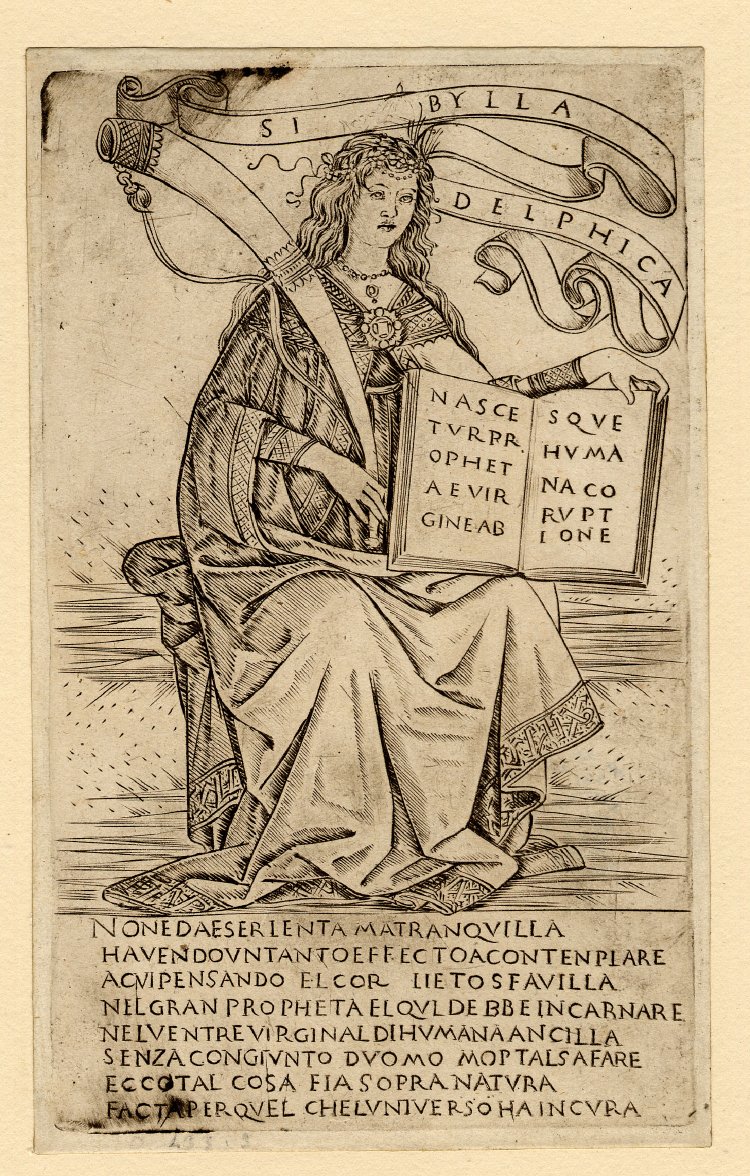 SIBYLLA
DELPHICA
NASCE
TVRPR
OPHET
AEVIR
GINEAB
SQVE
HVMA
NACO
RVPT
IONE
NONEDAESERLENTA MATRANQVILLA
HAVENDOVNTANTOEFFECTOACONTENPLARE
ACVIPENSANDO ELCOR LIETOSFAVILLA
NELGRAN PROPHETA ELQVLDEBBEINCARNARE
NELVENTREVIRGINALDIHVMANAANCILLA
SENZACONGIVNTO DVOMO MOPTALSAFARE
ECCOTAL COSA FIASOPRANATVRA
FACTAPERQVEL CHELVNIVERSOHAINCVRA